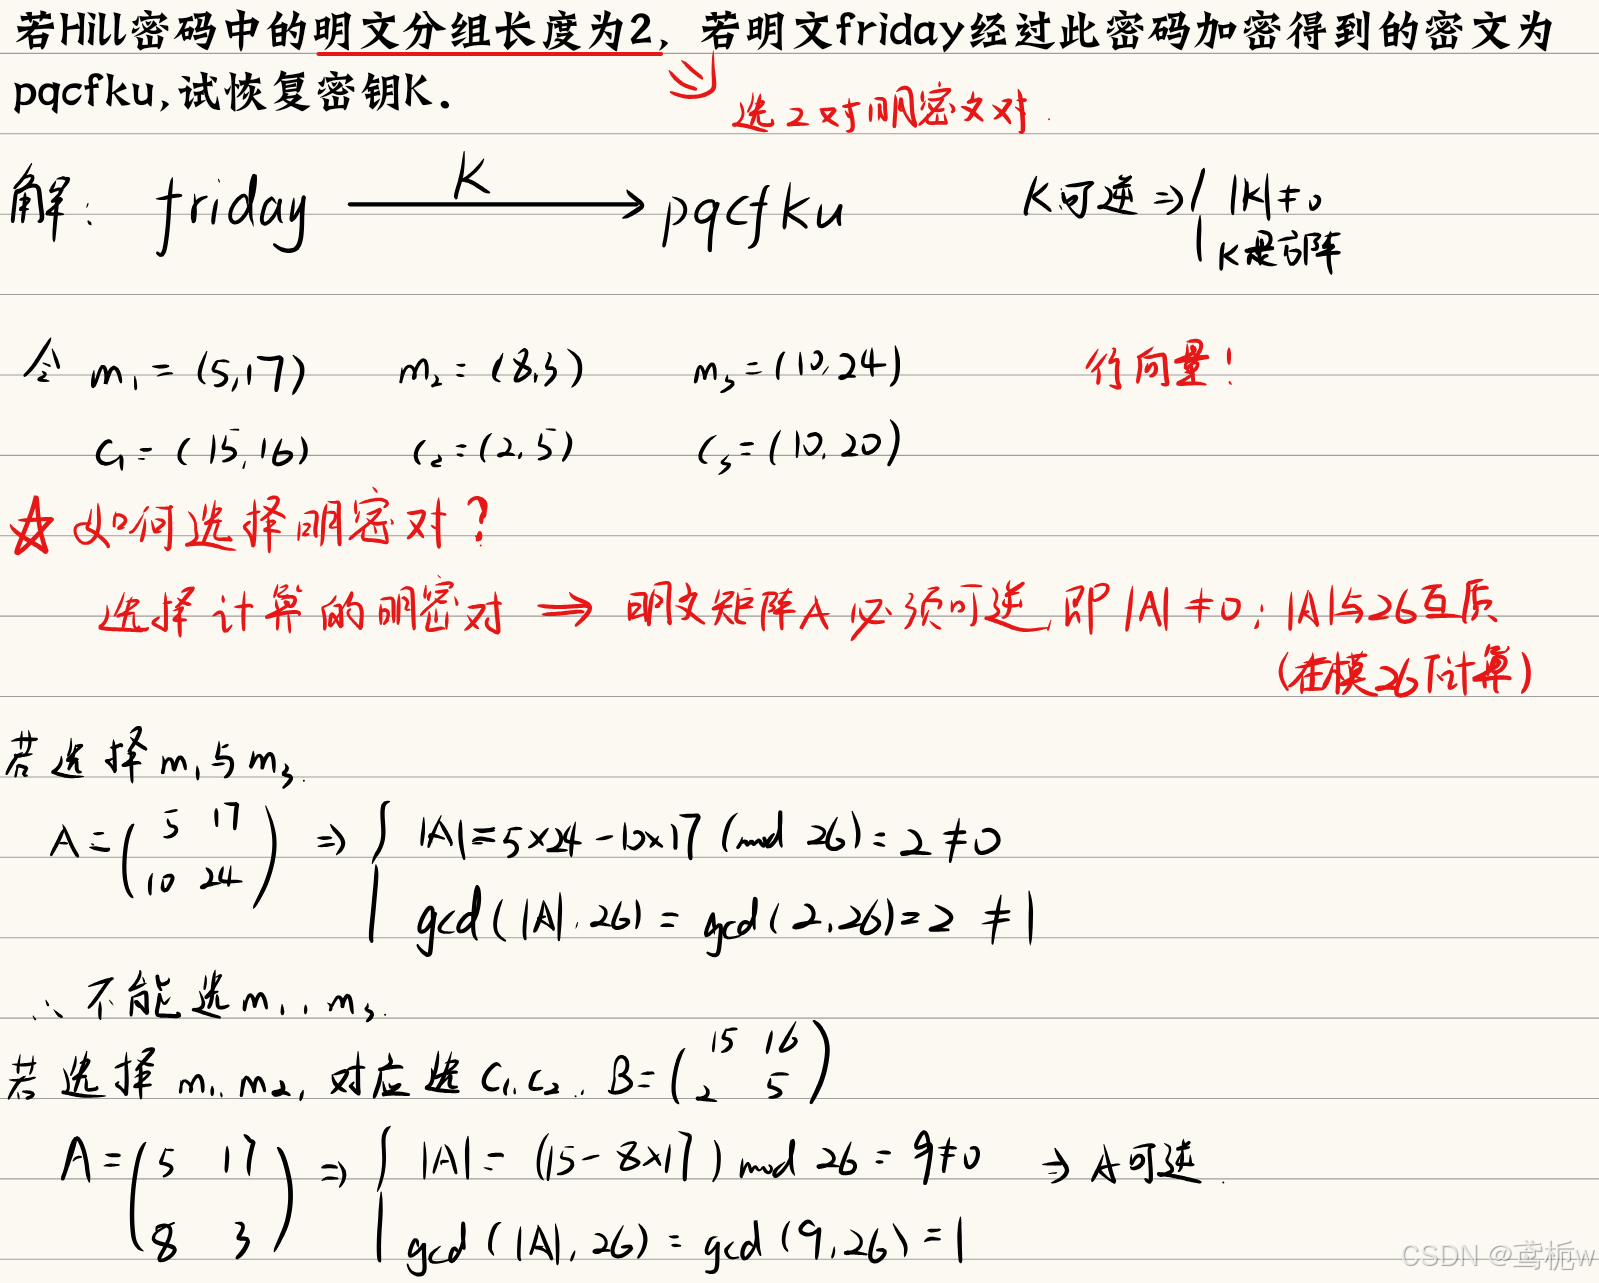 若Hill密码中的明文分组长度为2, 若明文friday经过此密码加密得到的密文为
pqcfku,试恢复密钥K.
选2对明密文对.
解: friday K pqcfku K可逆 ⇒ |K|≠0
K是方阵
令 m₁ = (5,17) m₂ = (8,3) m₃ = (10,24) 行向量!
C₁ = (15,16) C₂ = (2,5) C₃ = (10,20)
☆ 如何选择明密对?
选择计算的明密对 ⇒ 明文矩阵A必须可逆,即|A|≠0; |A|与26互质
(在模26下计算)
若选择m₁与m₃.
A = (5 17
10 24) ⇒ { |A| = 5×24 - 10×17 (mod 26) = 2 ≠ 0
gcd(|A|, 26) = gcd(2, 26) = 2 ≠ 1
∴ 不能选m₁, m₃.
若选择 m₁, m₂, 对应选 C₁, C₂. B = (15 16
2 5)
A = (5 17
8 3) ⇒ { |A| = (15 - 8×17) mod 26 = 9 ≠ 0 ⇒ A可逆.
gcd(|A|, 26) = gcd(9, 26) = 1
CSDN @鸢栀w